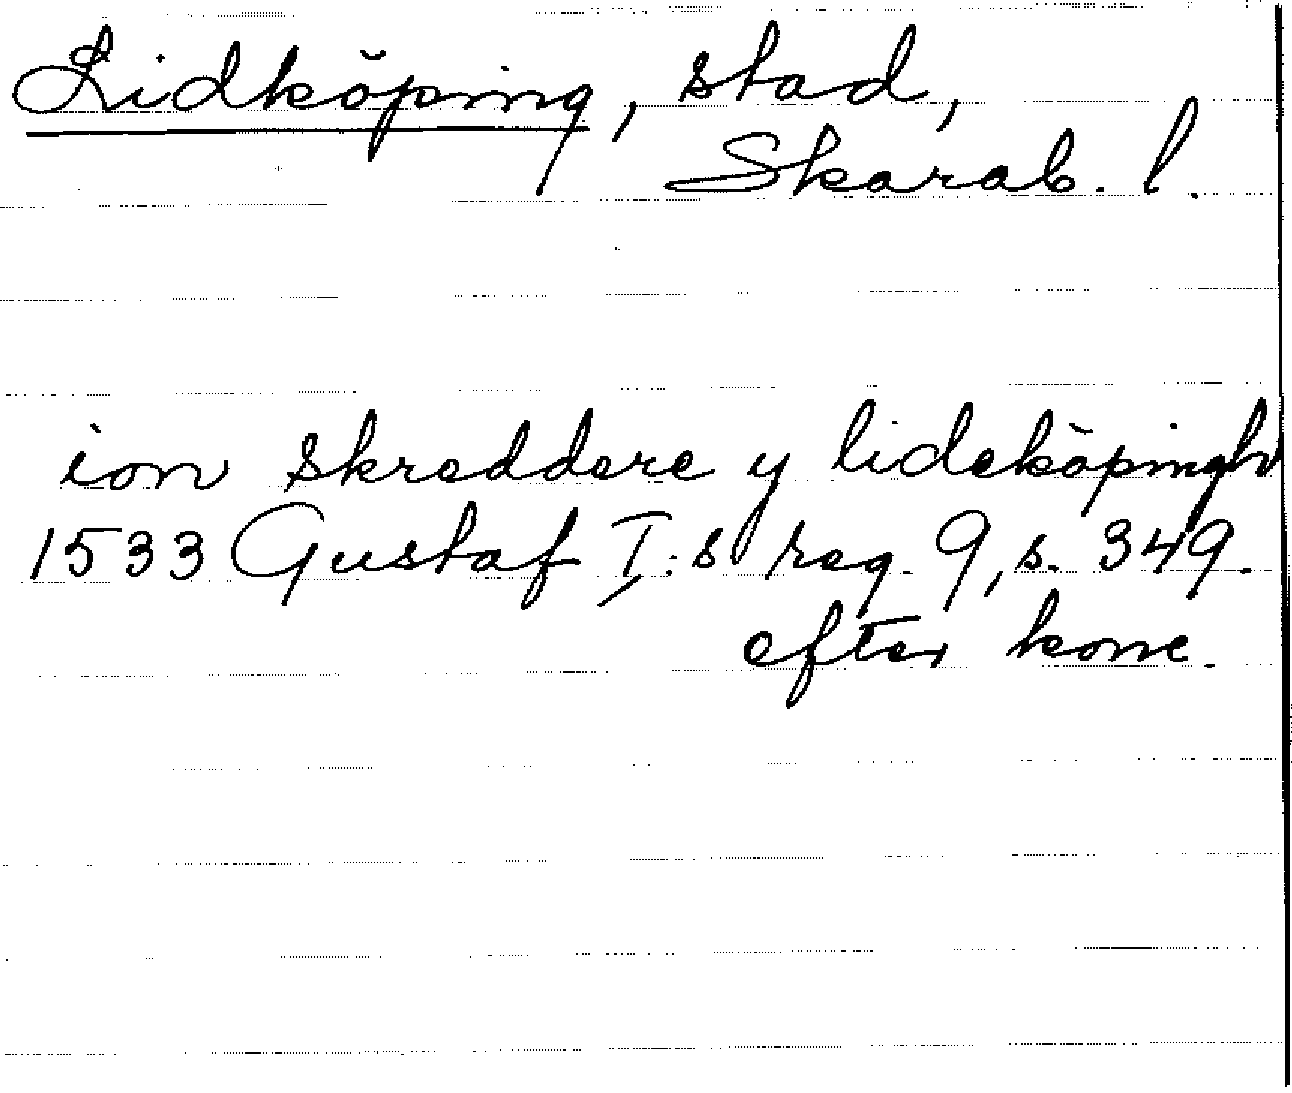 Lidköping, stad,
Skarab. l.
ion skreddere y lideköpingh
1533 Gustaf I:s reg. 9, s. 349.
efter konc.